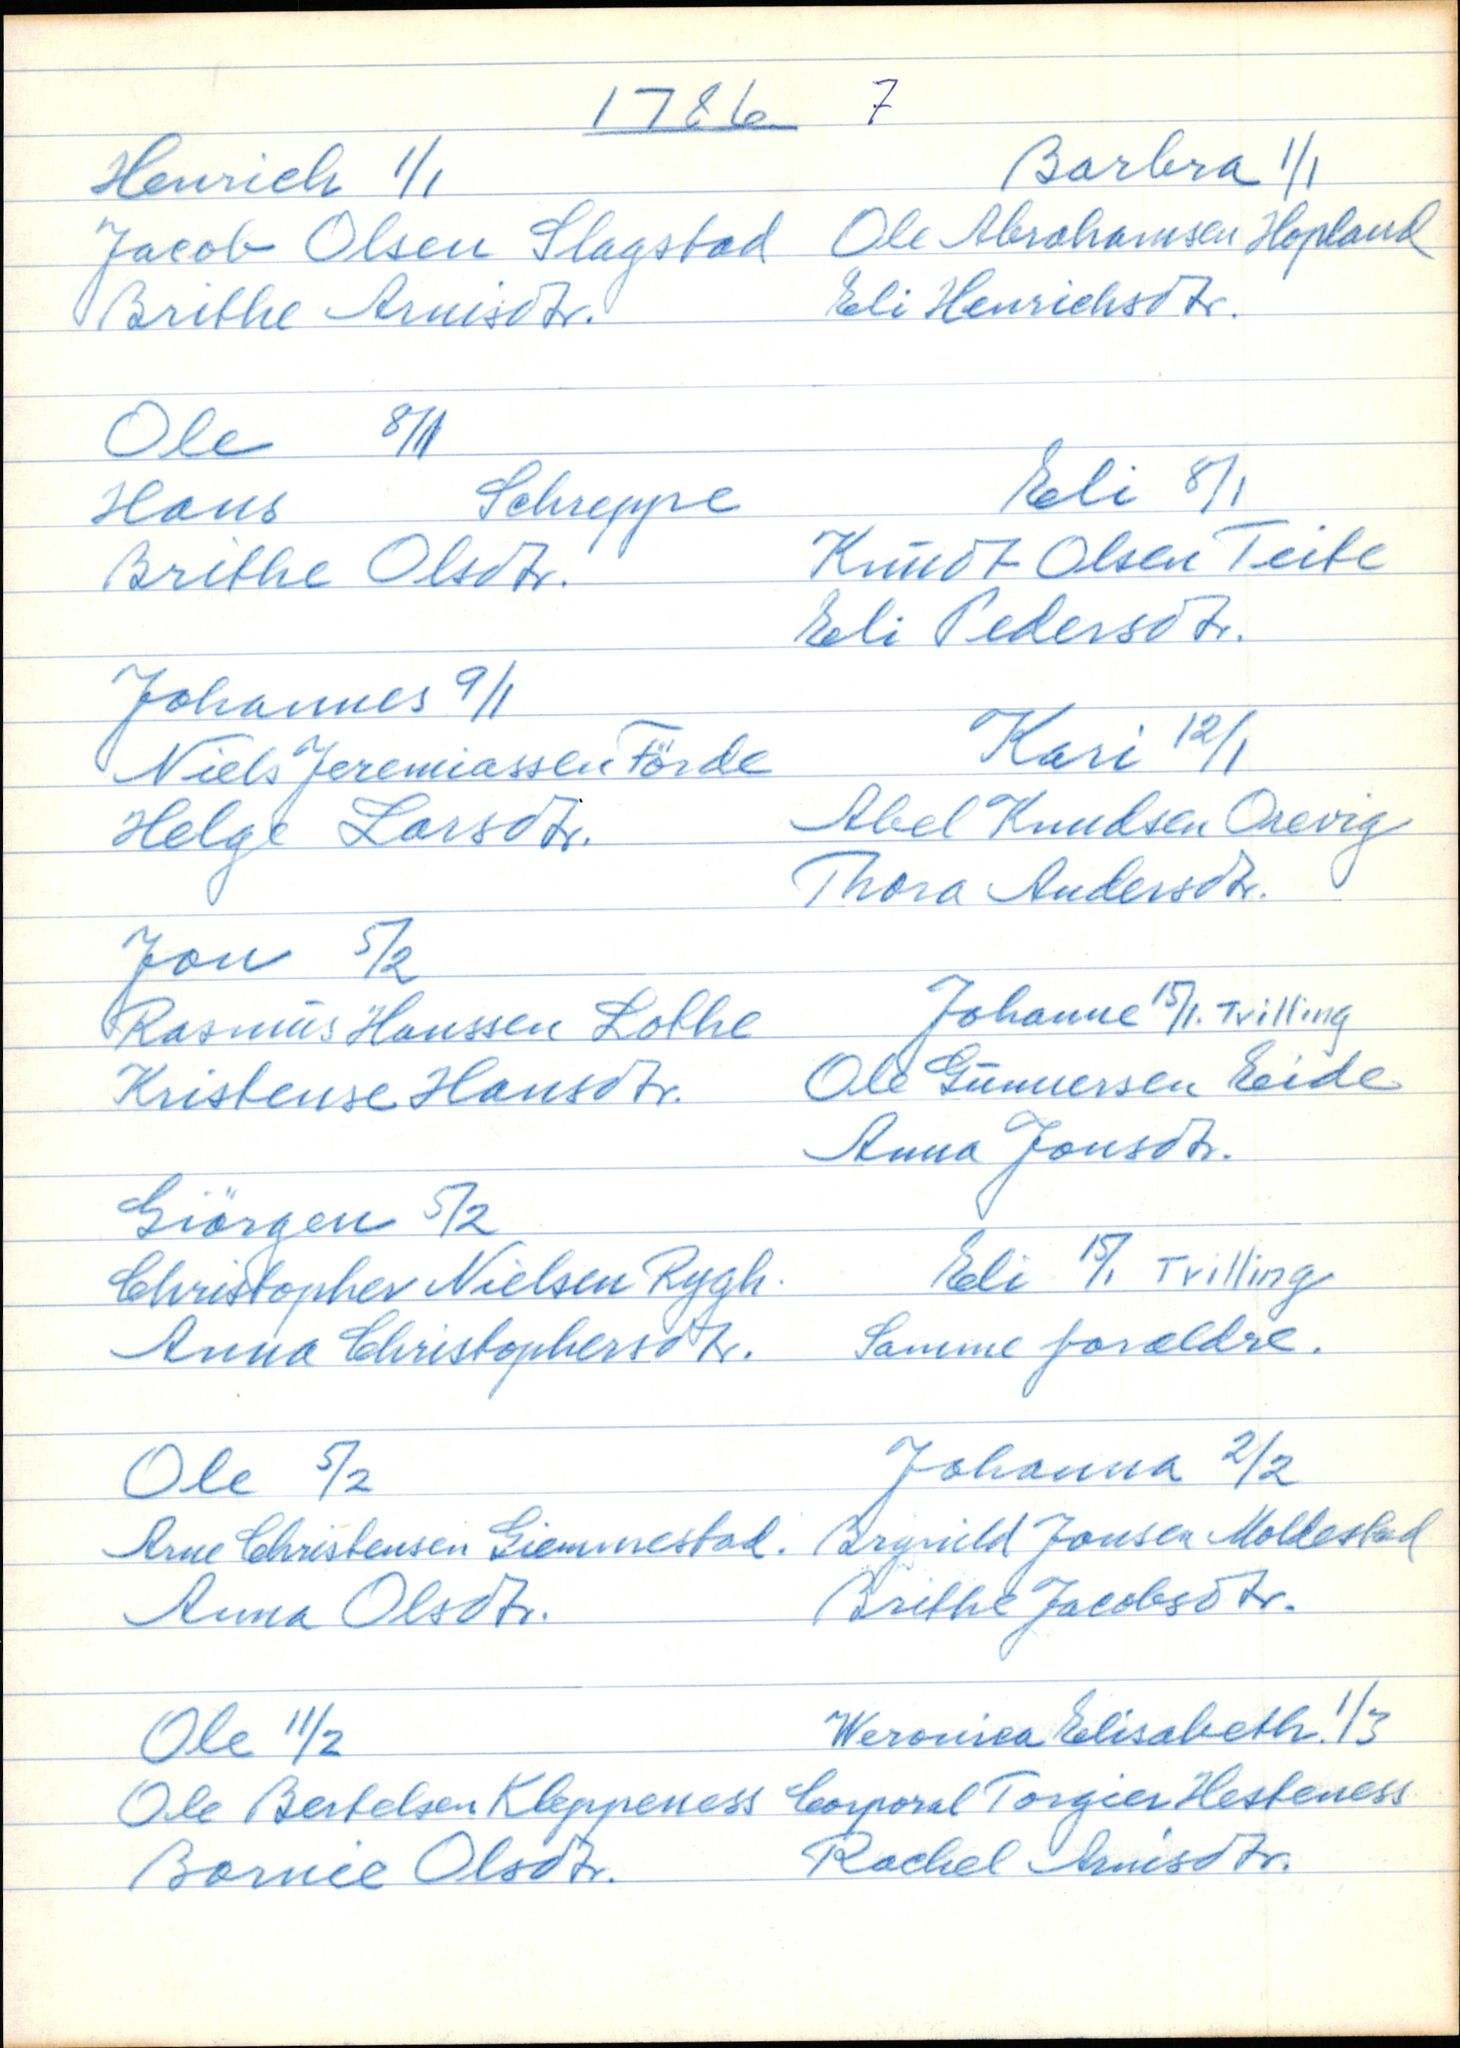 1786 7
Henrich 1/1
Jacob Olsen Slagstad
Brithe Arnisdtr.
Ole 8/1
Hans Schreppe
Brithe Olsdtr.
Johannes 9/1
Niels Jeremiassen Förde
Helge Larsdtr.
Jon 5/2
Rasmus Hanssen Lothe
Kristense Hansdtr.
Giörgen 5/2
Christopher Nielsen Rygh.
Anna Christophersdtr.
Ole 5/2
Arne Christensen Giemmestad.
Anna Olsdtr.
Ole 11/2
Ole Bertelsen Kleppeness
Bornie Olsdtr.
Barbra 1/1
Ole Abrahamsen Hopland
Eli Henrichsdtr.
Eli 8/1
Knudt Olsen Teite
Eli Pedersdtr.
Kari 12/1
Abel Knudsen Orevig
Thora Andersdtr.
Johanne 15/1. Trilling
Ole Gunnersen Eide
Anna Jonsdtr.
Eli 15/1 Trilling
Samme forældre.
Johanna 2/2
Brynild Jonsen Moldestad
Brithe Jacobsdtr.
Weronica Elisabeth. 1/3
Corporal Torgier Hesteness
Rachel Arnisdtr.